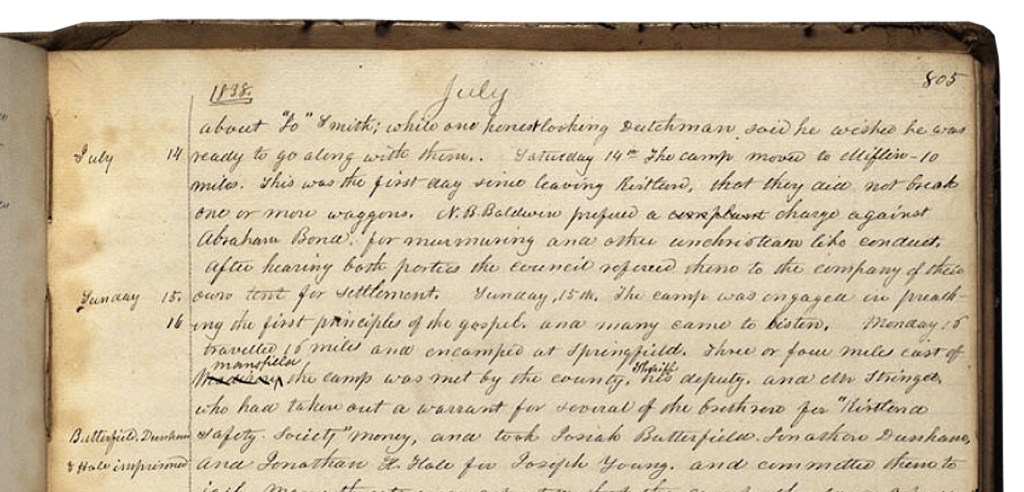 1838. July 805
about "Jo" Smith; while one honest looking Dutchman, said he wished he was
July 14 ready to go along with them.. Saturday 14th The camp moved to Mifflin - 10
miles. This was the first day since leaving Kirtland, that they did not break
one or more waggons. N. B. Baldwin prefered a complaint charge against
Abraham Bond. for murmuring and other unchristian like conduct.
After hearing both parties the council refered them to the company of their
Sunday 15. own tent for settlement. Sunday, 15th. The camp was engaged in preach-
16 ing the first principles of the gospel. and many came to listen. Monday 16
travelled 16 miles and encamped at Springfield. Three or four miles east of
mansfield Sheriff
the camp was met by the county, his deputy. and Mr Stringer,
who had taken out a warrant for several of the brethren for "Kirtland
Butterfield, Dunham Safety Society" money, and took Josiah Butterfield. Jonathan Dunham,
& Hale imprisoned and Jonathan H. Hale for Joseph Young. and committed them to